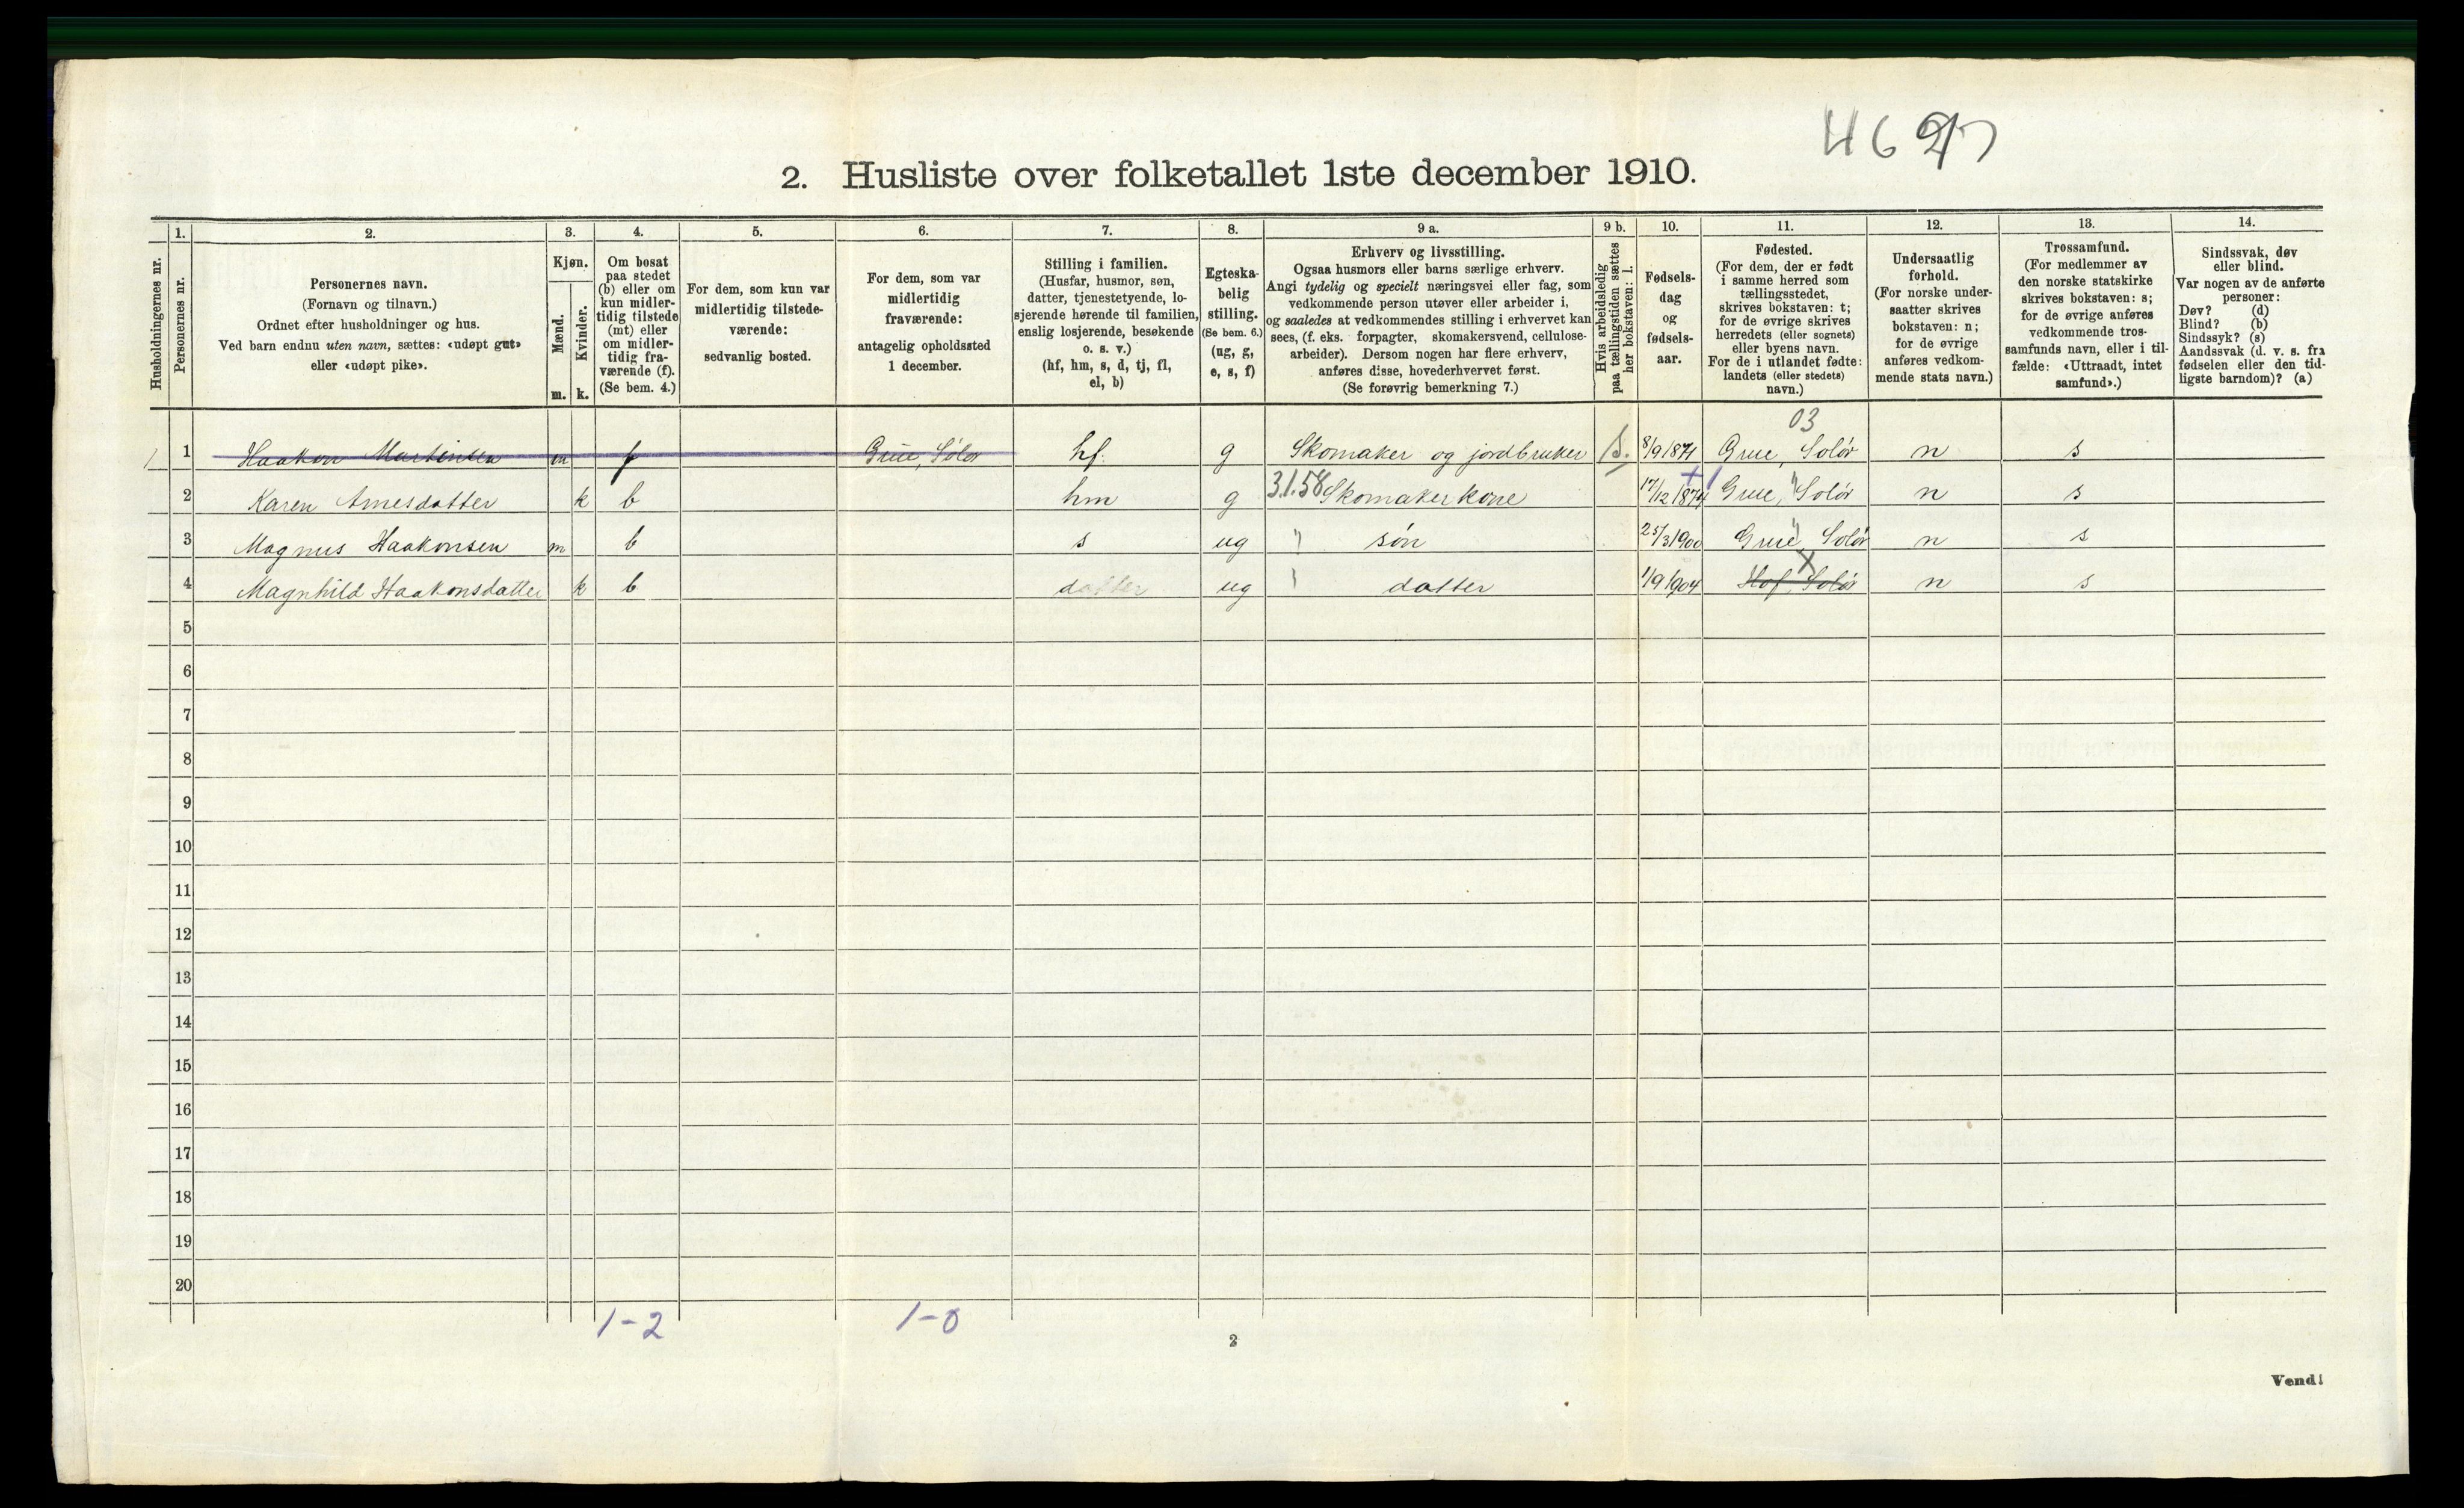 4627
2. Husliste over folketallet 1ste december 1910.
Husholdningernes nr.
1.
Personernes nr.
2.
Personernes navn.
(Fornavn og tilnavn.)
Ordnet efter husholdninger og hus.
Ved barn endnu uten navn, sættes: «udøpt gut»
eller «udøpt pike».
3.
Kjøn.
Mænd.
Kvinder.
m. k.
4.
Om bosat
paa stedet
(b) eller om
kun midler-
tidig tilstede
(mt) eller
om midler-
tidig fra-
værende (f).
(Se bem. 4.)
5.
For dem, som kun var
midlertidig tilstede-
værende:
sedvanlig bosted.
6.
For dem, som var
midlertidig
fraværende:
antagelig opholdssted
1 december.
7.
Stilling i familien.
(Husfar, husmor, søn,
datter, tjenestetyende, lo-
sjerende hørende til familien,
enslig losjerende, besøkende
o. s. v.)
(hf, hm, s, d, tj, fl,
el, b)
8.
Egteska-
belig
stilling.
(Se bem. 6.)
(ug, g,
e, s, f)
9 a.
Erhverv og livsstilling.
Ogsaa husmors eller barns særlige erhverv.
Angi tydelig og specielt næringsvei eller fag, som
vedkommende person utøver eller arbeider i,
og saaledes at vedkommendes stilling i erhvervet kan
sees, (f. eks. forpagter, skomakersvend, cellulose-
arbeider). Dersom nogen har flere erhverv,
anføres disse, hovederhvervet først.
(Se forøvrig bemerkning 7.)
9 b.
Hvis arbeidsledig
paa tællingstiden sættes
her bokstaven: l.
10.
Fødsels-
dag
og
fødsels-
aar.
11.
Fødested.
(For dem, der er født
i samme herred som
tællingsstedet,
skrives bokstaven: t;
for de øvrige skrives
herredets (eller sognets)
eller byens navn.
For de i utlandet fødte:
landets (eller stedets)
navn.)
12.
Undersaatlig
forhold.
(For norske under-
saatter skrives
bokstaven: n;
for de øvrige
anføres vedkom-
mende stats navn.)
13.
Trossamfund.
(For medlemmer av
den norske statskirke
skrives bokstaven: s;
for de øvrige anføres
vedkommende tros-
samfunds navn, eller i til-
fælde: «Uttraadt, intet
samfund».)
14.
Sindssvak, døv
eller blind.
Var nogen av de anførte
personer:
Døv? (d)
Blind? (b)
Sindssyk? (s)
Aandssvak (d. v. s. fra
fødselen eller den tid-
ligste barndom)? (a)
03
1 1 Haakon Martinsen m f Grue, Solør hf. g Skomaker og jordbruker 8/9 1871 Grue, Solør n s
2 Karen Arnesdatter k b hm g 3.1.58 Skomakerkone 17/12 1874 Grue, Solør n s
3 Magnus Haakonsen m b s ug " søn 25/3 1900 Grue, Solør n s
4 Magnhild Haakonsdatter k b datter ug " datter 1/9 1904 Hof, Solør n s
5
6
7
8
9
10
11
12
13
14
15
16
17
18
19
20
1-2 1-0
2
Vend!